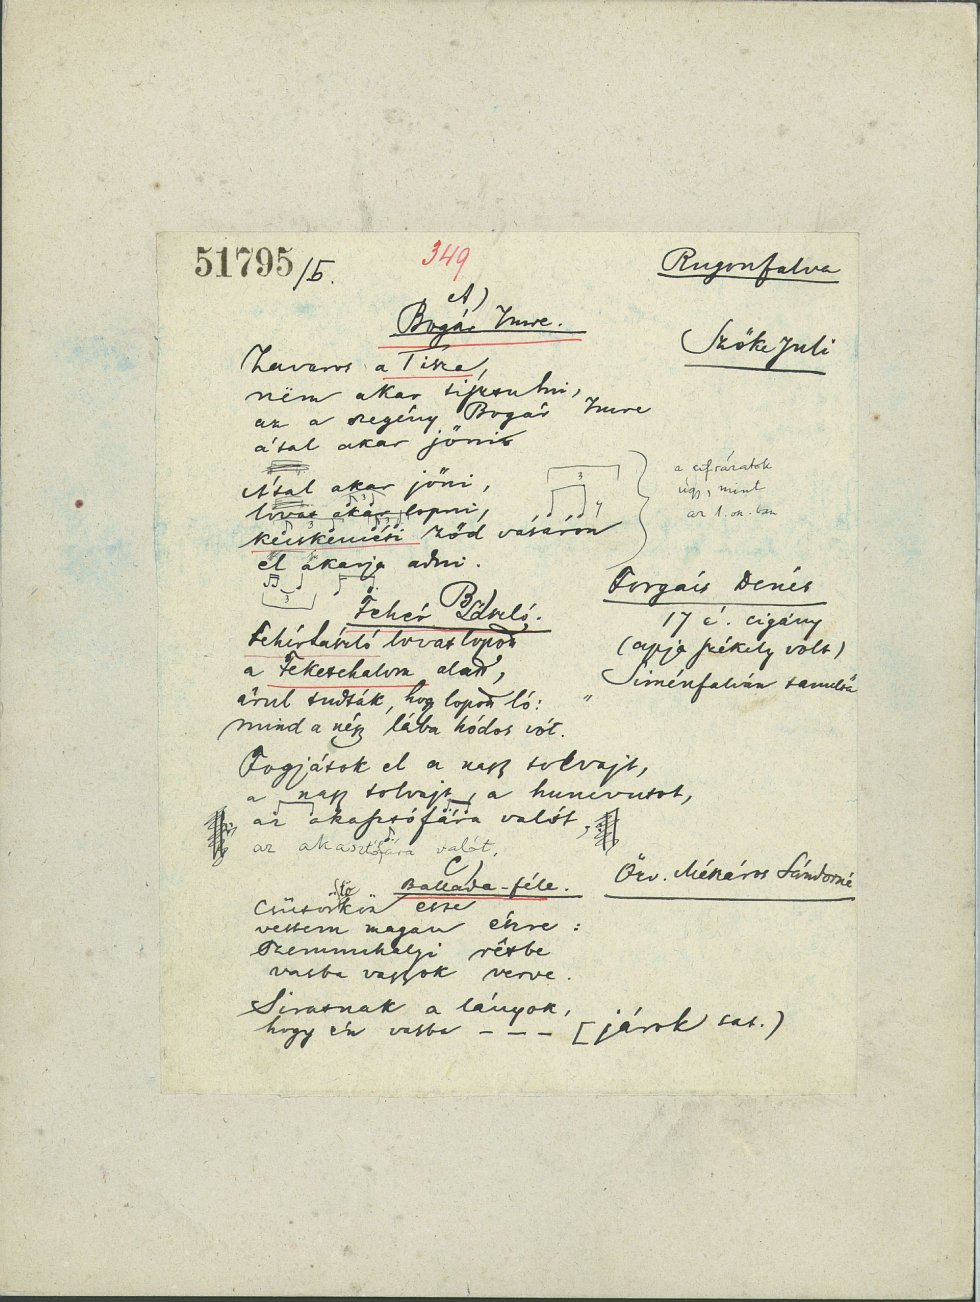 51795/5.
349
Rugonfalva
A)
Bogár Imre.
Szőke Juli
Zavaros a Tisza,
nëm akar tisztulni,
az a szegény Bogár Imre
átal akar jőni
Átal akar jőni,
lovat akar lopni,
kécskeméti ződ vásáron
el akarja adni.
3
a cifrázatok
úgy, mint
az 1. on. ban
B)
Fehér László.
Forgács Dénés
17 é. cigány
(apja székely volt)
Siménfalván tanulta
Fehír László lovat lopott
a Feketehalom alatt,
árul tudták, hogy lopott ló:
mind a négy lába hódos vót.
Fogjátok el a nagy tolvajt,
a nagy tolvajt, a huncutot,
az akasztófára valót,
az akasztófára valót,
C)
Ballada-féle.
Özv. Mészáros Sándorné
Csütörtökön este
vettem magam észre:
Szemmihályi rétbe
vasba vagyok verve.
Siratnak a lányok,
hogy én vasba – – – [járok sat.)